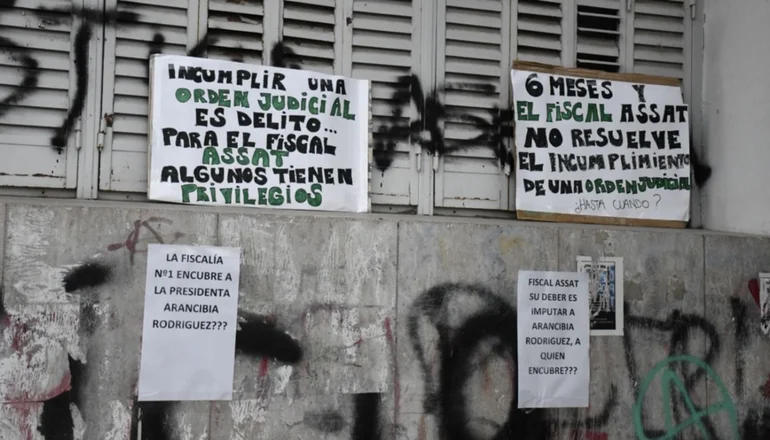 INCUMPLIR UNA
ORDEN JUDICIAL
ES DELITO...
PARA EL FISCAL
ASSAT
ALGUNOS TIENEN
PRIVILEGIOS
6 MESES Y
EL FISCAL ASSAT
NO RESUELVE
EL INCUMPLIMIENTO
DE UNA ORDEN JUDICIAL
¿HASTA CUANDO?
LA FISCALÍA
Nº1 ENCUBRE A
LA PRESIDENTA
ARANCIBIA
RODRIGUEZ???
FISCAL ASSAT
SU DEBER ES
IMPUTAR A
ARANCIBIA
RODRIGUEZ, A
QUIEN
ENCUBRE???